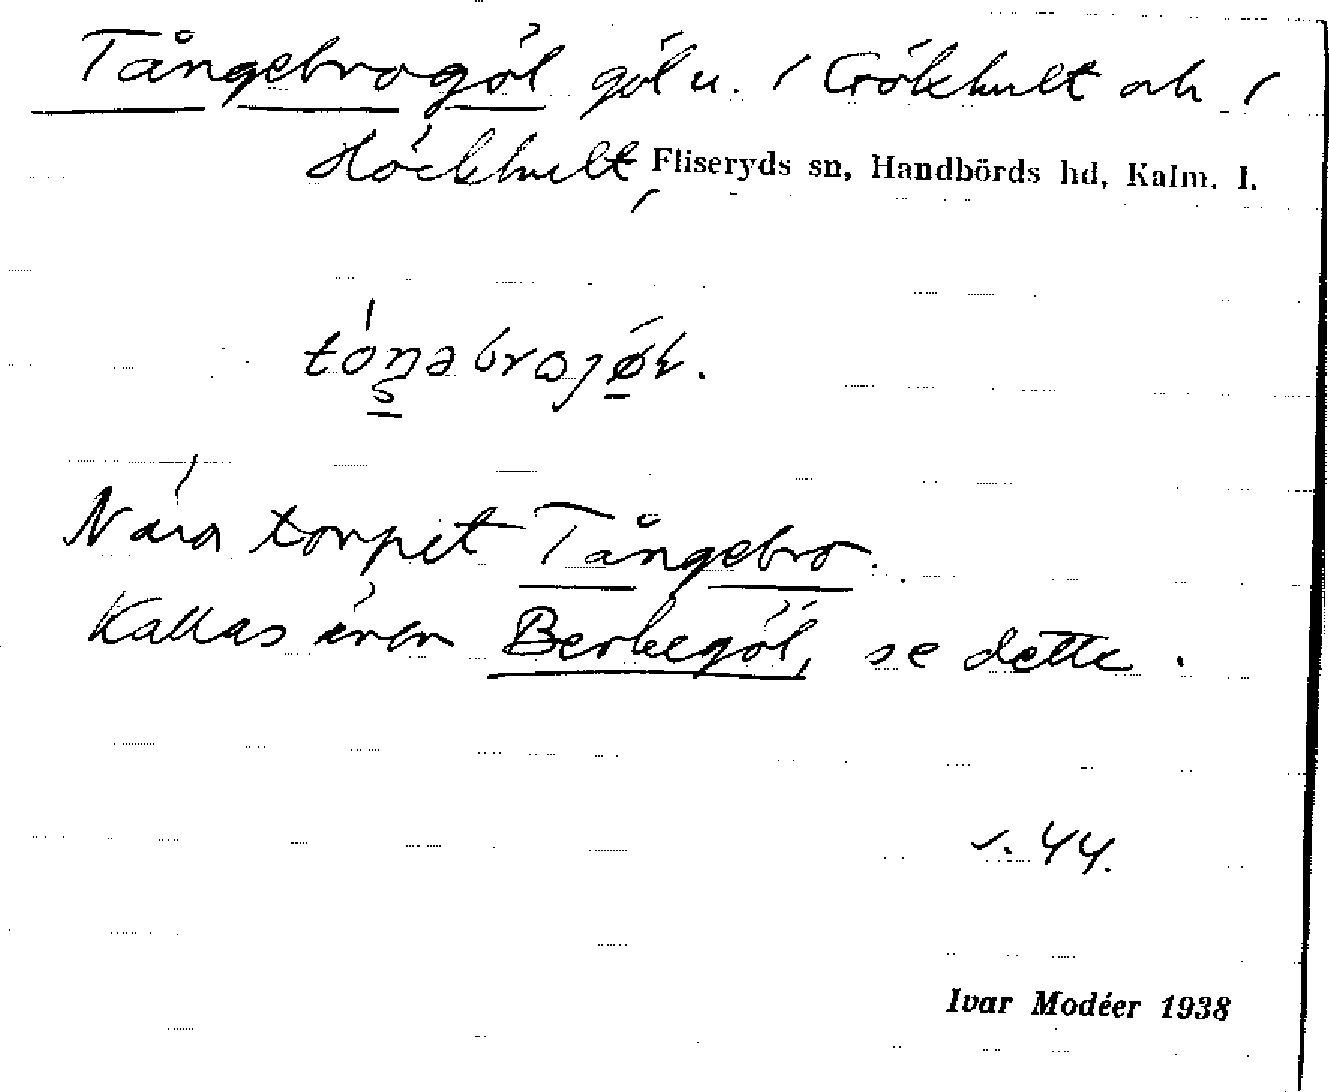 Tångebrogöl göl u. / Grökhult och /
Höckhult, Fliseryds sn, Handbörds hd, Kalm. l.
Nära torpet Tångebro.
Kallas även Berbegöl, se detta.
s. 44.
Ivar Modéer 1938